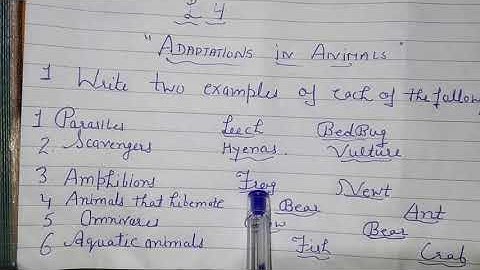 2 4
"ADAPTATIONS IN ANIMALS"
1 Write two examples of each of the follow
1 Parasites Leech BedBug
2. Scavengers Hyenas Vulture
3 Amphibions Frog Newt
4 Animals that hibernate Bear Ant
5 Omnivores Bear
6 Aquatic animals Fish Crab